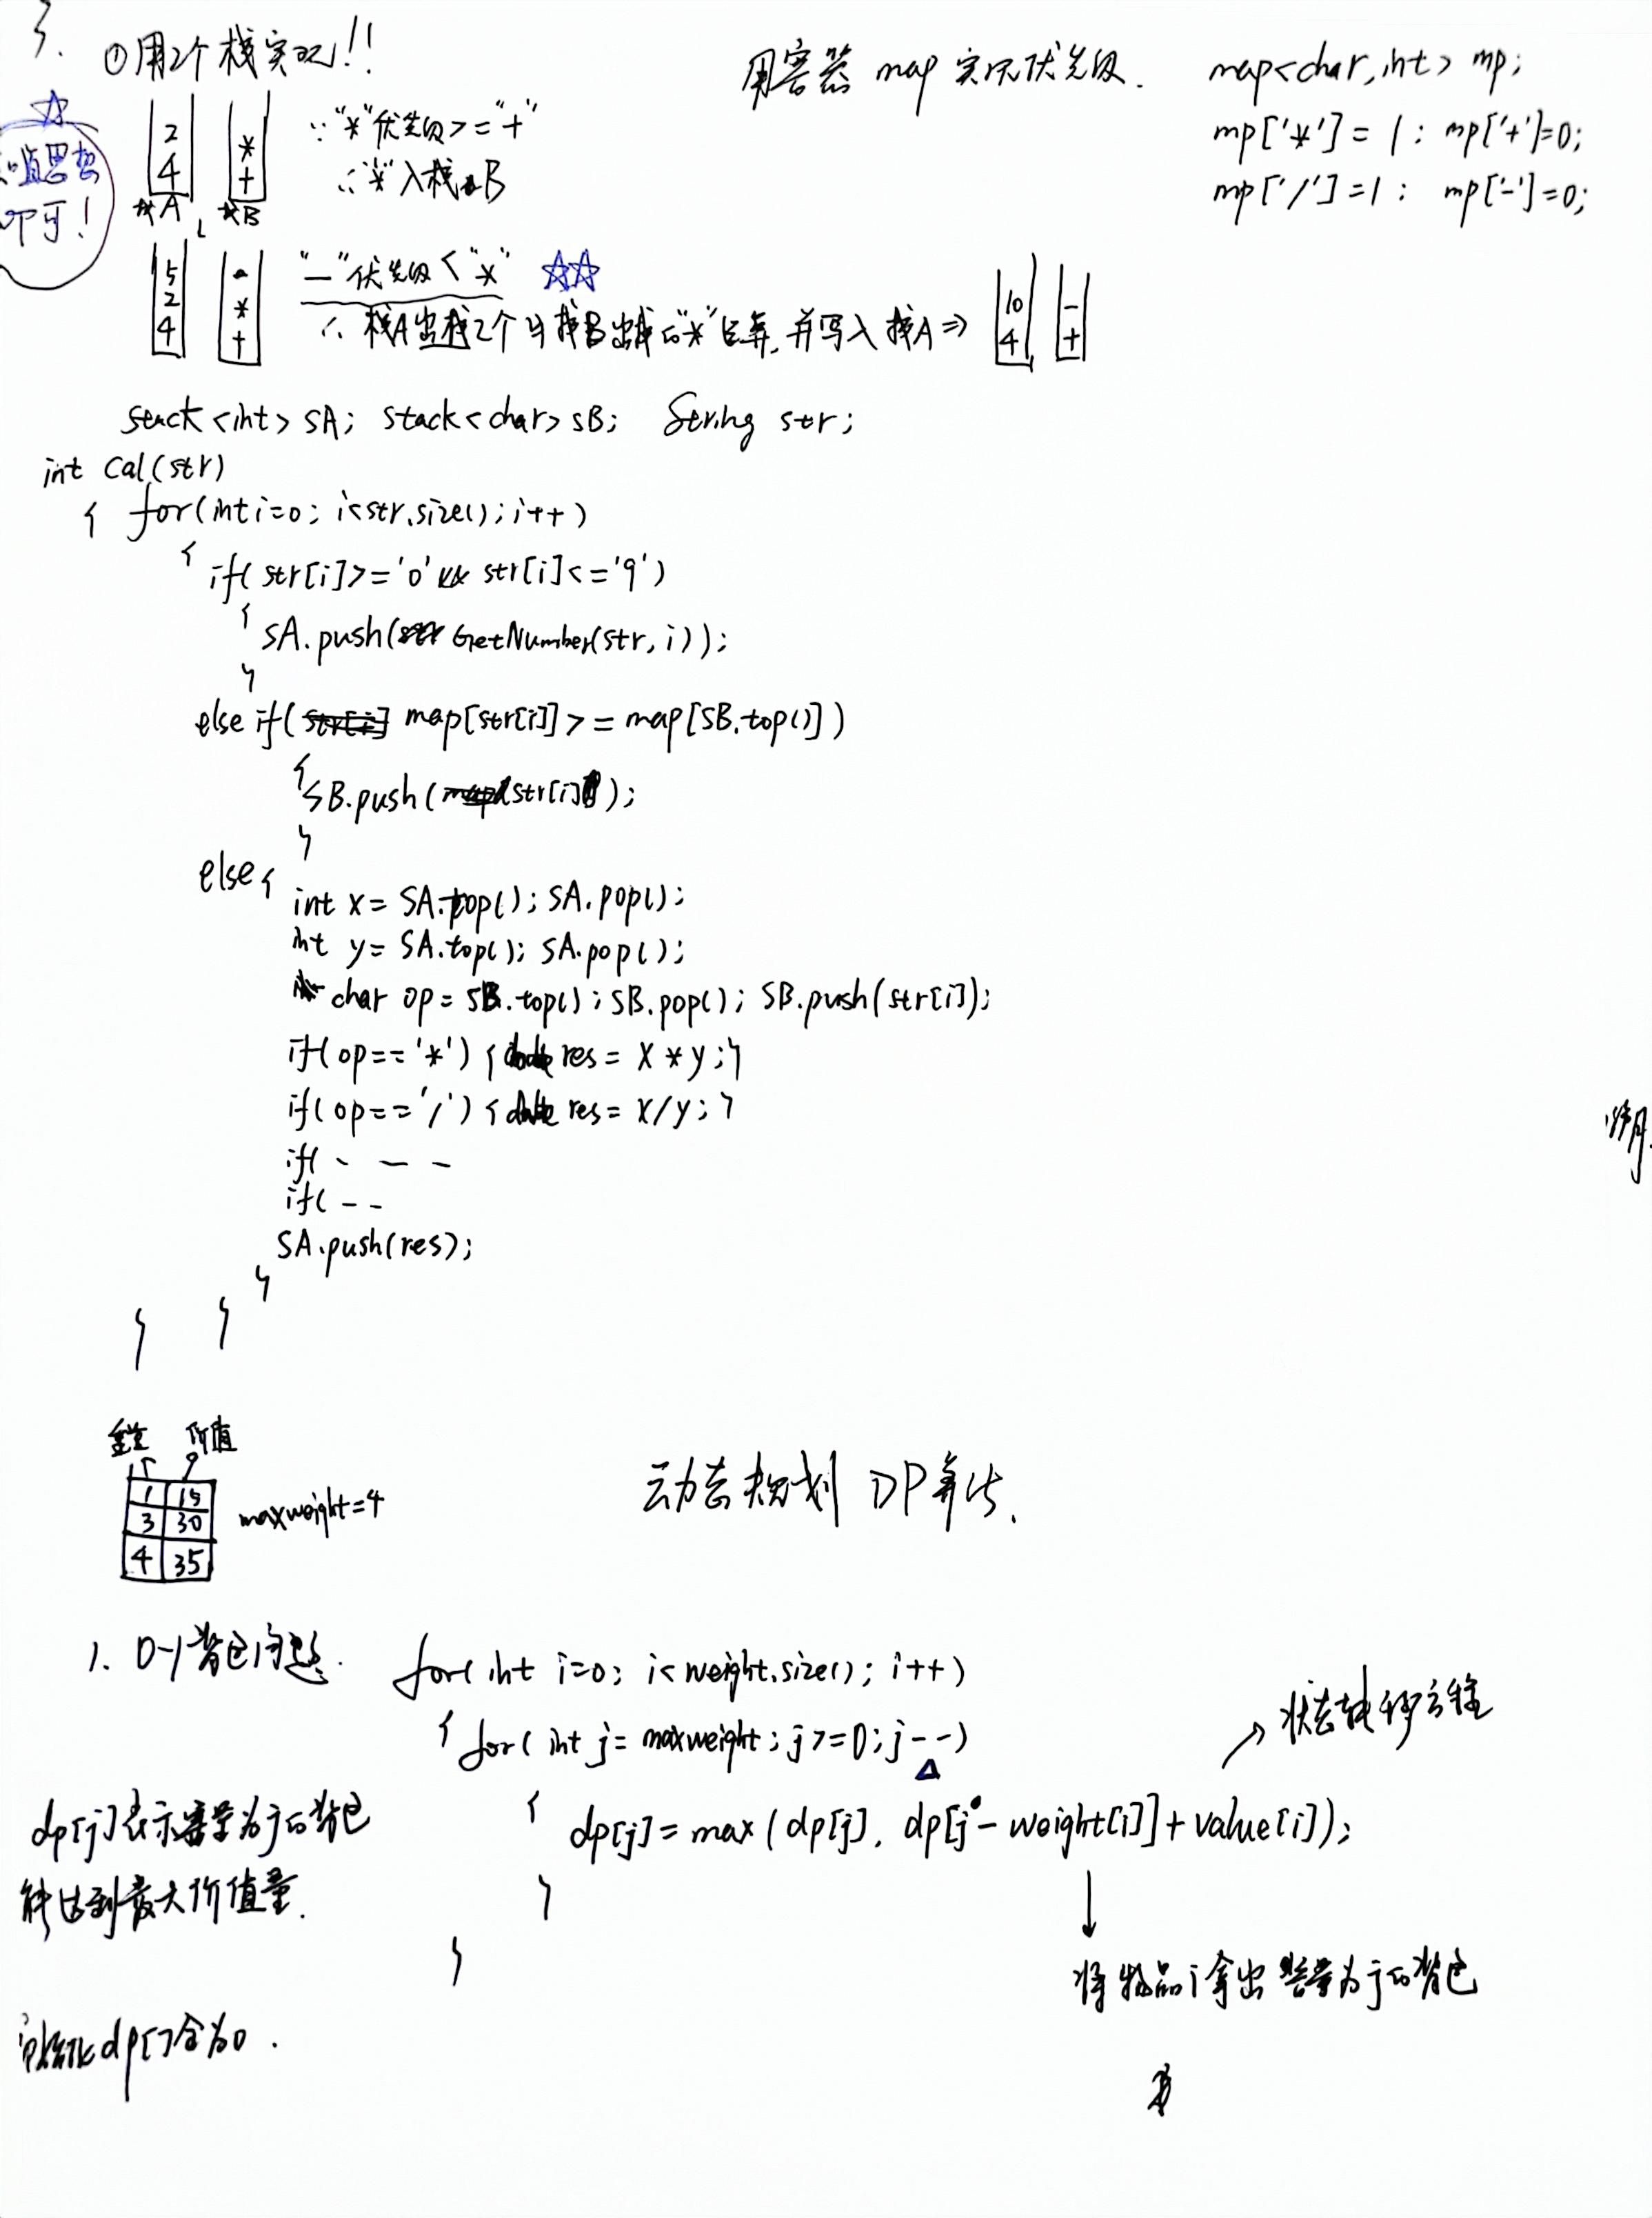 3. ①用2个栈实现!! 用容器 map 实现优先级. map<char,int> mp;
mp['*'] = 1; mp['+']=0;
mp['/']=1; mp['-']=0;
☆
思想
即可!
2
4
栈A
*
+
栈B
∵"*"优先级>="+"
∴"*"入栈B
5
2
4
-
*
+
"—"优先级<"*" ☆☆
∴ 栈A出栈2个与栈B出栈的"*"运算,并写入栈A⇒
10
4
-
+
stack<int> sA; stack<char> sB; String str;
int Cal(str)
{ for(int i=0; i<str.size(); i++)
{ if( str[i]>='0' && str[i]<='9')
{ sA.push( GetNumber(str, i));
}
else if( map[str[i]] >= map[SB.top()])
{
SB.push( str[i] );
}
else{
int x= SA.top(); SA.pop();
int y= SA.top(); SA.pop();
char op= SB.top(); SB.pop(); SB.push(str[i]);
if( op=='*') { res= x*y; }
if( op=='/') { res= x/y; }
if( - - -
if( - -
SA.push(res);
}
} }
重量 价值
1 15
3 30
4 35
maxweight=4
动态规划 DP算法.
1. 0-1背包问题.
for( int i=0; i<weight.size(); i++)
{ for( int j= maxweight; j>=0; j--)
△
→ 状态转移方程
{ dp[j]= max( dp[j], dp[j-weight[i]]+value[i]);
}
}
dp[j]表示容量为j的背包
能达到最大价值量.
↓
将物品i拿出 容量为j的背包
初始化dp[]全为0.